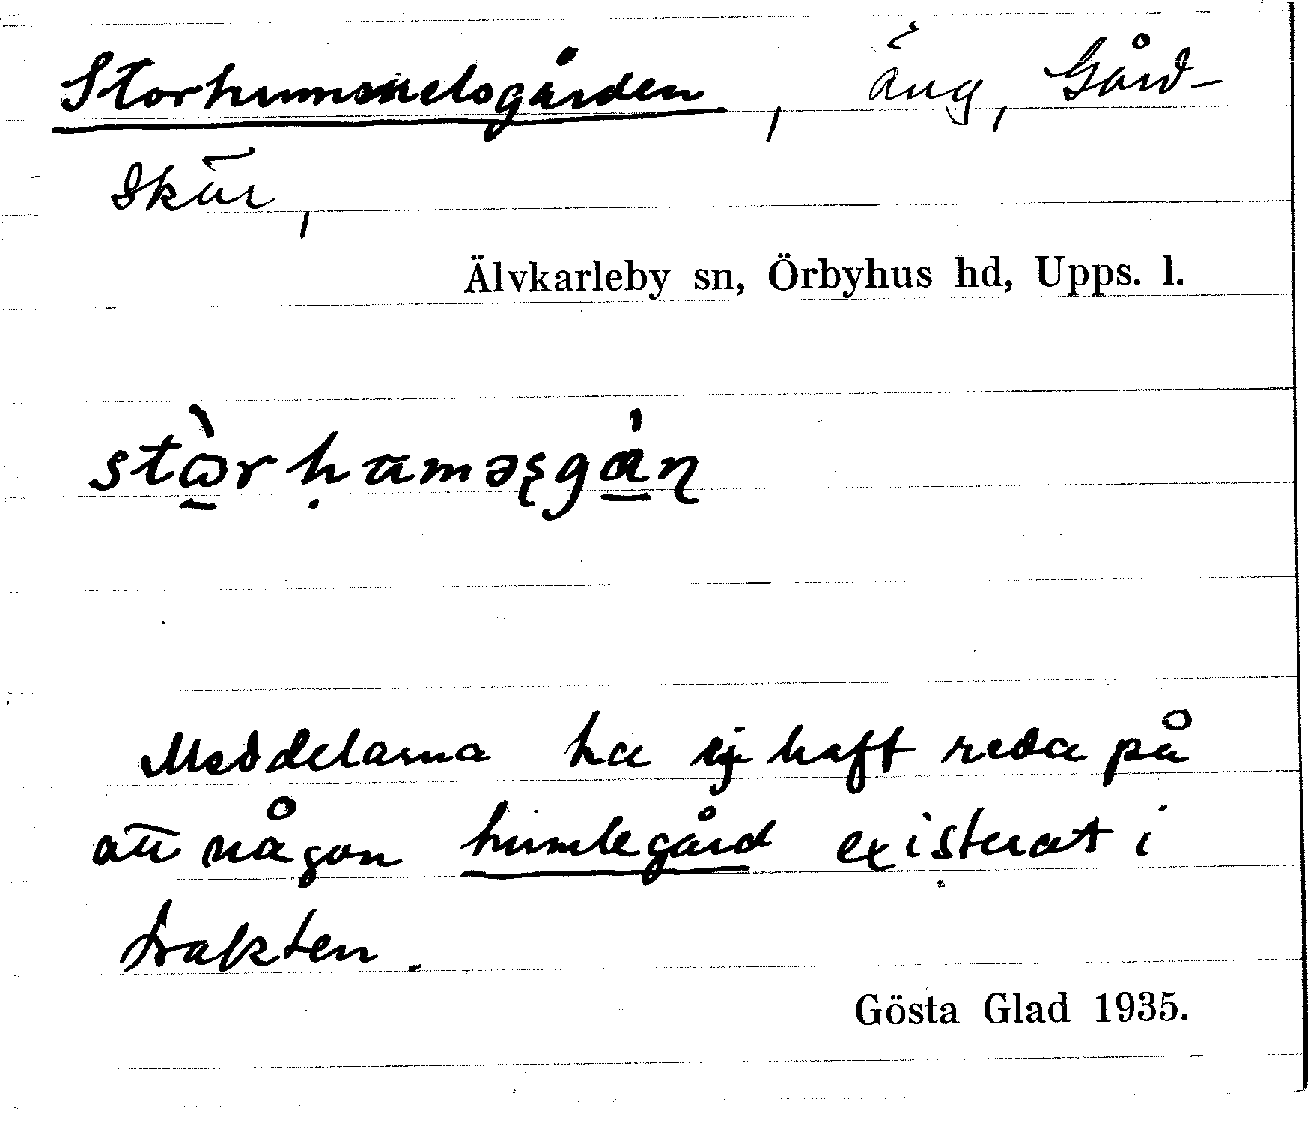 Storhummelsgården, äng, Gård-
skär,
Älvkarleby sn, Örbyhus hd, Upps. l.
Meddelarna ha ej haft reda på
att någon humlegård existerat i
trakten.
Gösta Glad 1935.